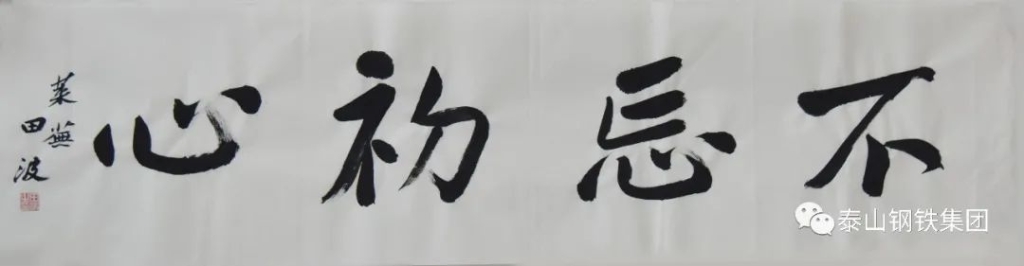 不忘初心
莱芜
田波
泰山钢铁集团